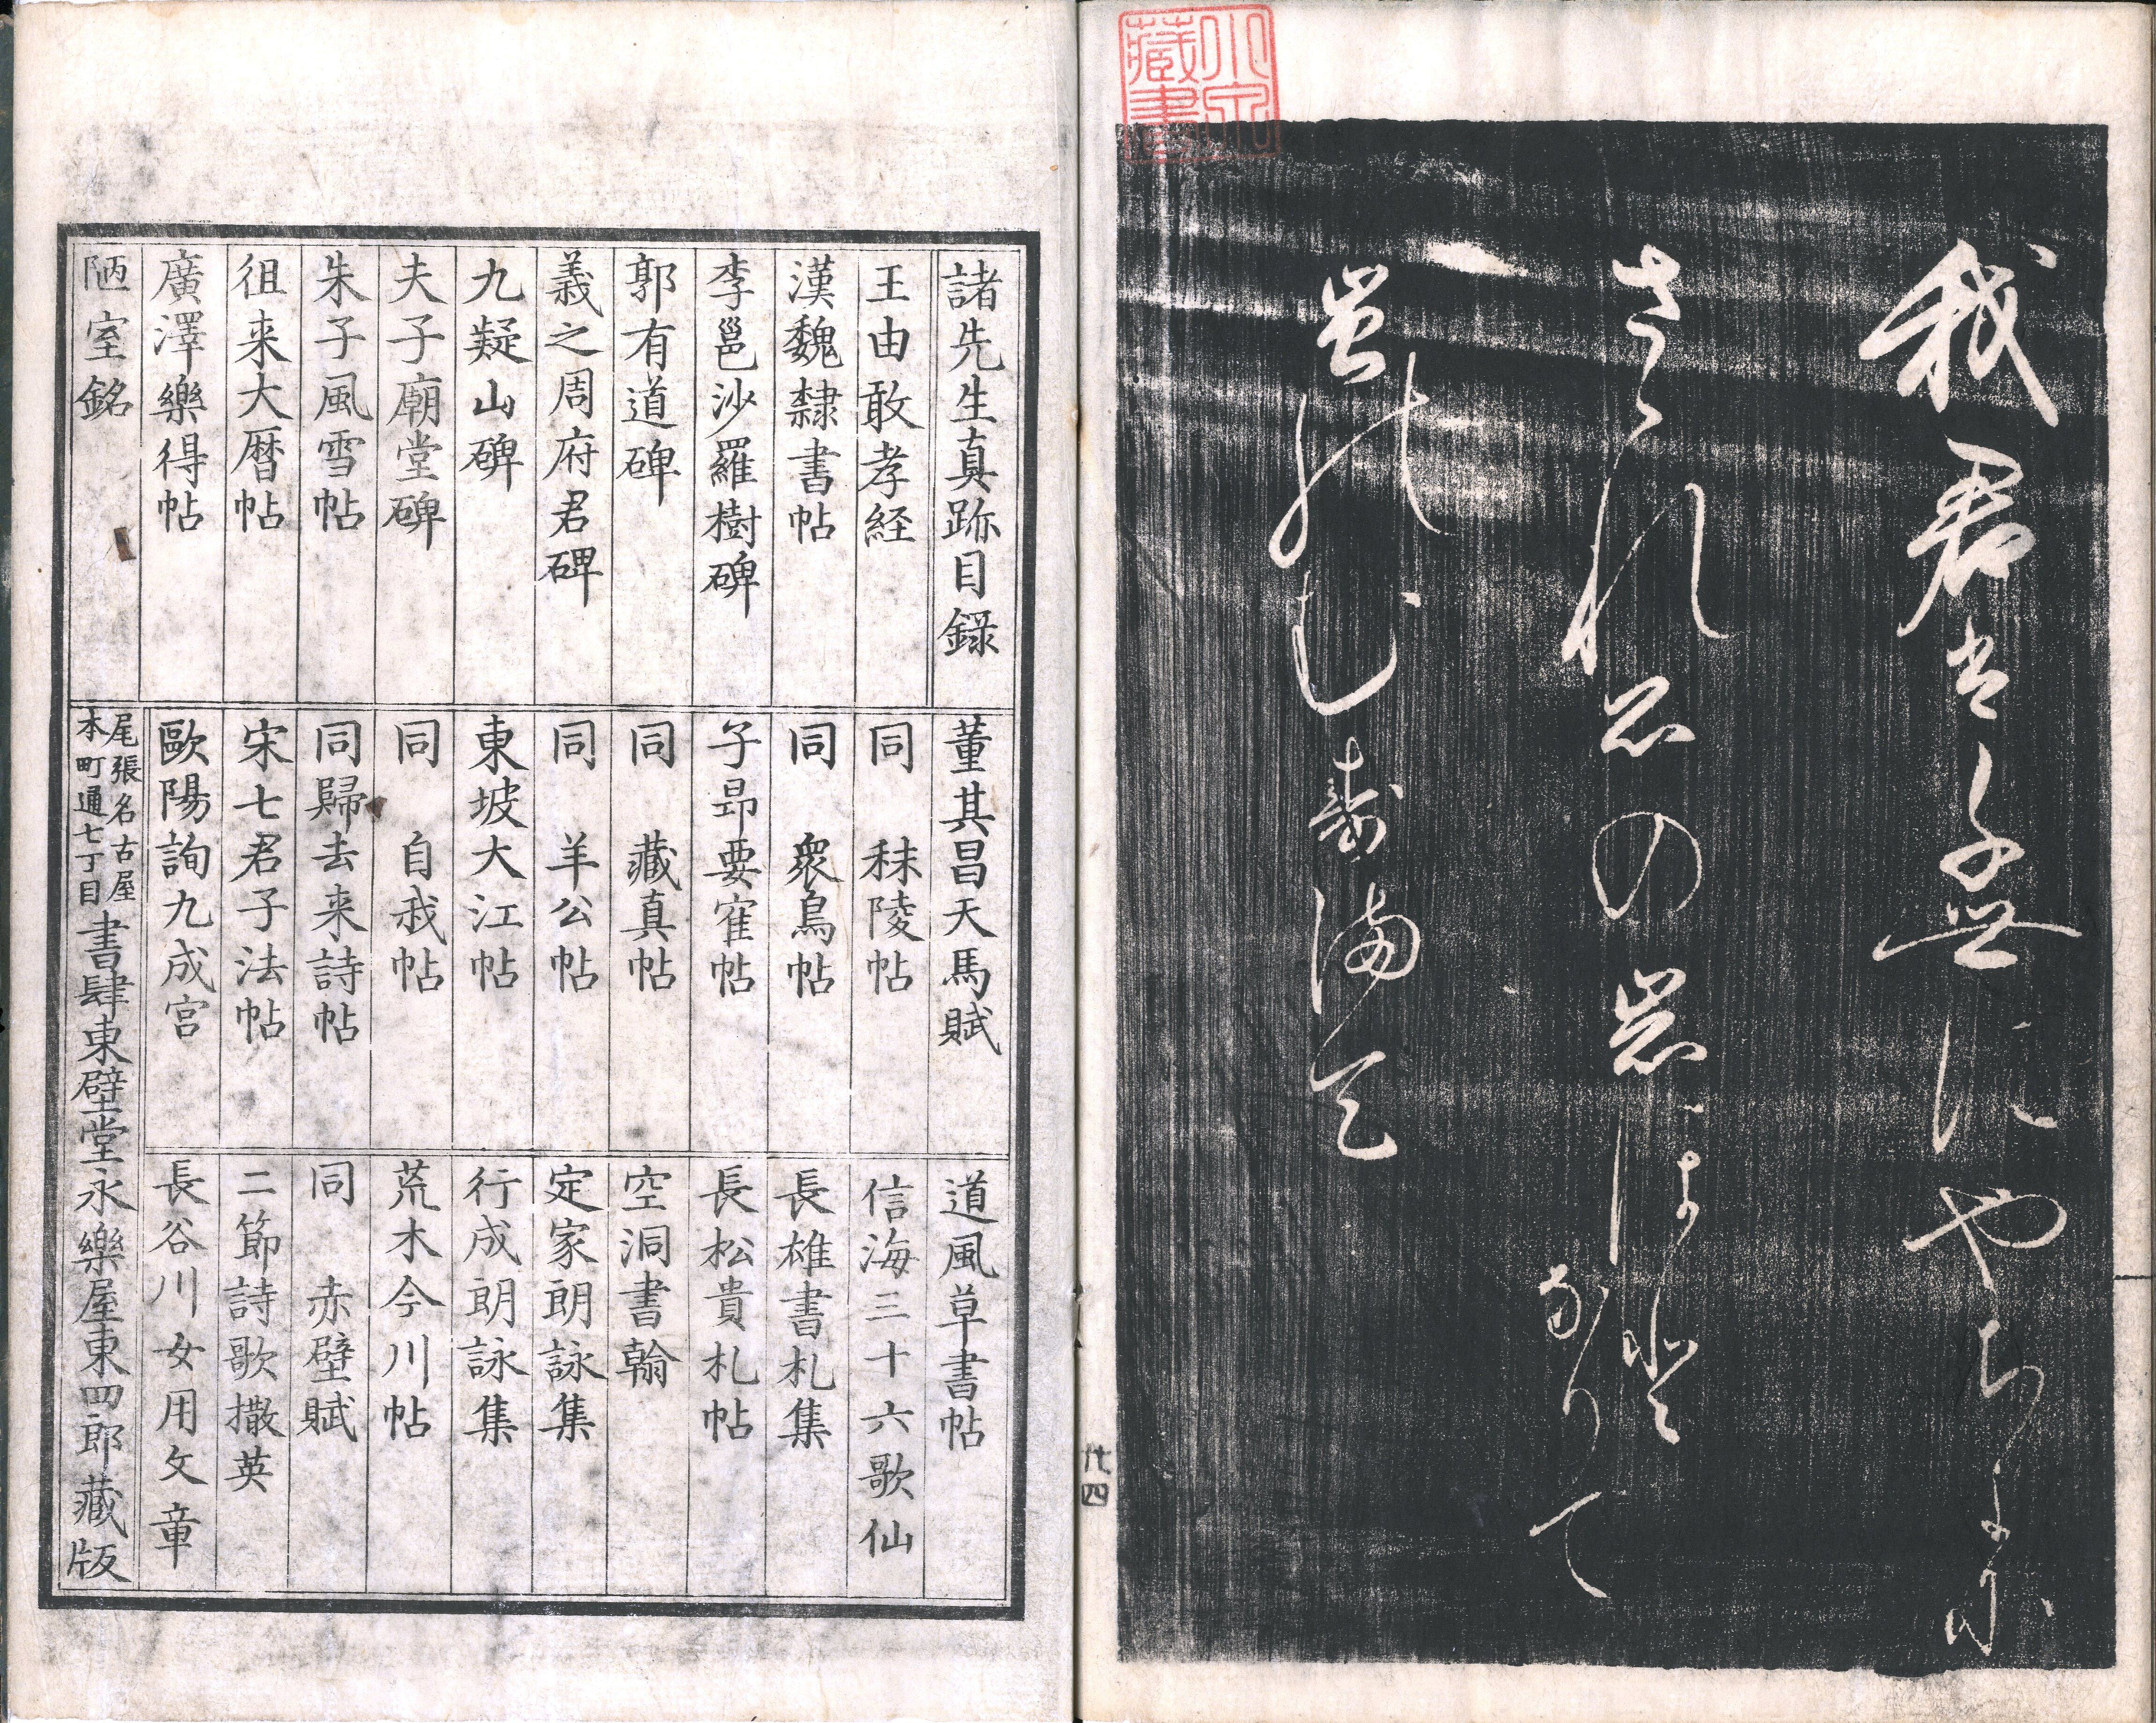 我君は千世にやちよに
さゝれ石の巌ほと
なりて
苔のむ寿満て
小泉
蔵書
廿四
諸先生真跡目録
王由敢孝経
漢魏隸書帖
李邕沙羅樹碑
郭有道碑
義之周府君碑
九疑山碑
夫子廟堂碑
朱子風雪帖
徂来大暦帖
廣澤樂得帖
陋室銘
董其昌天馬賦
同 秣陵帖
同 衆鳥帖
子昻要寉帖
同 藏真帖
同 羊公帖
東坡大江帖
同 自我帖
同歸去来詩帖
宋七君子法帖
歐陽詢九成宮
道風草書帖
信海三十六歌仙
長雄書札集
長松貴札帖
空洞書翰
定家朗詠集
行成朗詠集
荒木今川帖
同 赤壁賦
二節詩歌撒英
長谷川女用文章
尾張名古屋
本町通七丁目
書肆東壁堂永樂屋東四郎藏版